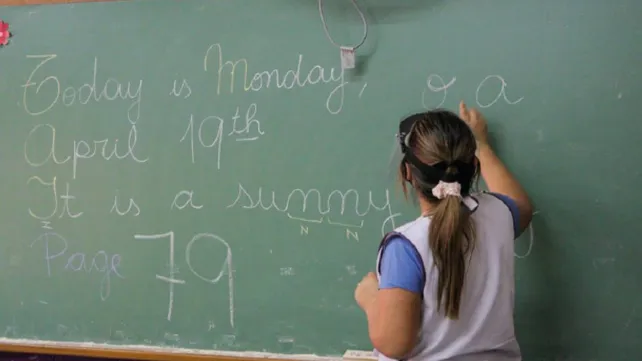 Today is Monday, o a
April 19th
It is a sunny
N N
Page 79